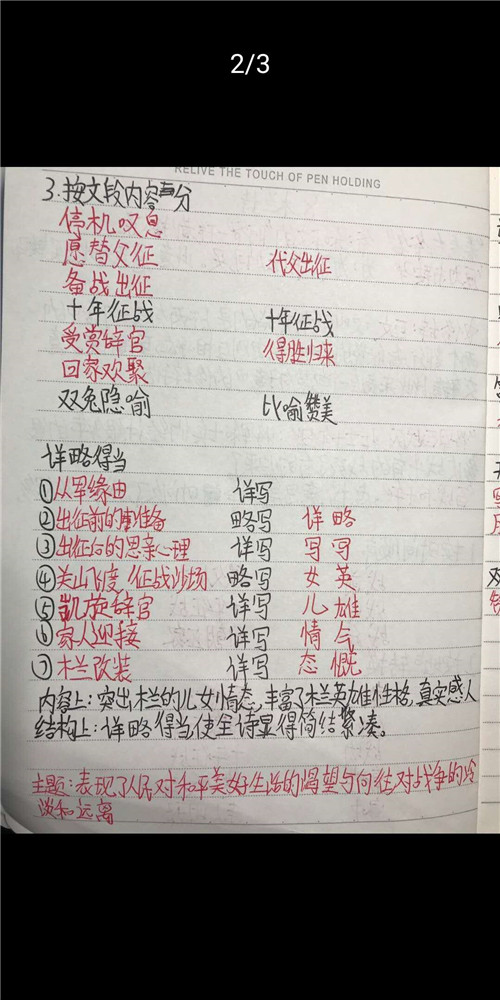 2/3
RELIVE THE TOUCH OF PEN HOLDING
3.按文段内容分
停机叹息
愿替父征 代父出征
备战出征
十年征战 十年征战
受赏辞官 得胜归来
回家欢聚
双兔隐喻 比喻赞美
详略得当
①从军缘由 详写
②出征前的准备 略写 详略
③出征后的思亲心理 详写 写写
④关山飞度/征战沙场 略写 女英
⑤凯旋辞官 详写 儿雄
⑥家人迎接 详写 情气
⑦木兰改装 详写 态慨
内容上:突出木兰的儿女情态,丰富了木兰英雄性格,真实感人
结构上:详略得当使全诗显得简结紧凑。
主题:表现了人民对和平美好生活的渴望与向往对战争的冷
淡和远离